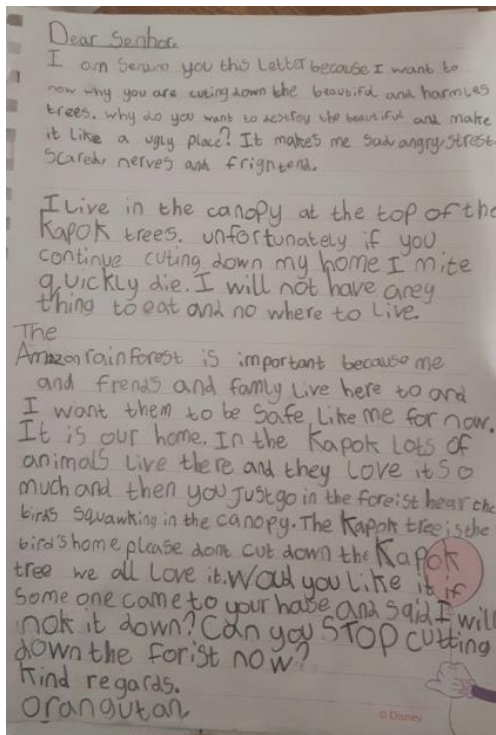 Dear Senhor.
I am Sending you this Letter because I want to
now why you are cuting down the beautiful and harmles
trees. why do you want to destroy the beautiful and make
it like a ugly place? It makes me sad angry, strest
scared, nerves and frigntend.
I Live in the canopy at the top of the
Kapok trees. unfortunately if you
continue cuting down my home I mite
quickly die. I will not have arey
thing to eat and no where to live.
The
Amazon rainforest is important because me
and frends and famly Live here to and
I want them to be safe Like me for now.
It is our home. In the Kapok Lots of
animals Live there and they Love it so
much and then you just go in the foreist hear the
birds squawking in the canopy. The Kapok tree is the
bird's home please dont cut down the Kapok
tree we all Love it. Woud you Like it if
some one came to your hase and said I will
nok it down? Can you STOP cutting
down the forist now?
Kind regards.
Orangutan
© Disney